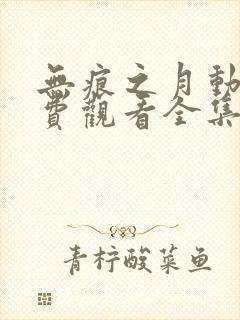 無痕之月動
費觀看全集
青柠酸菜鱼